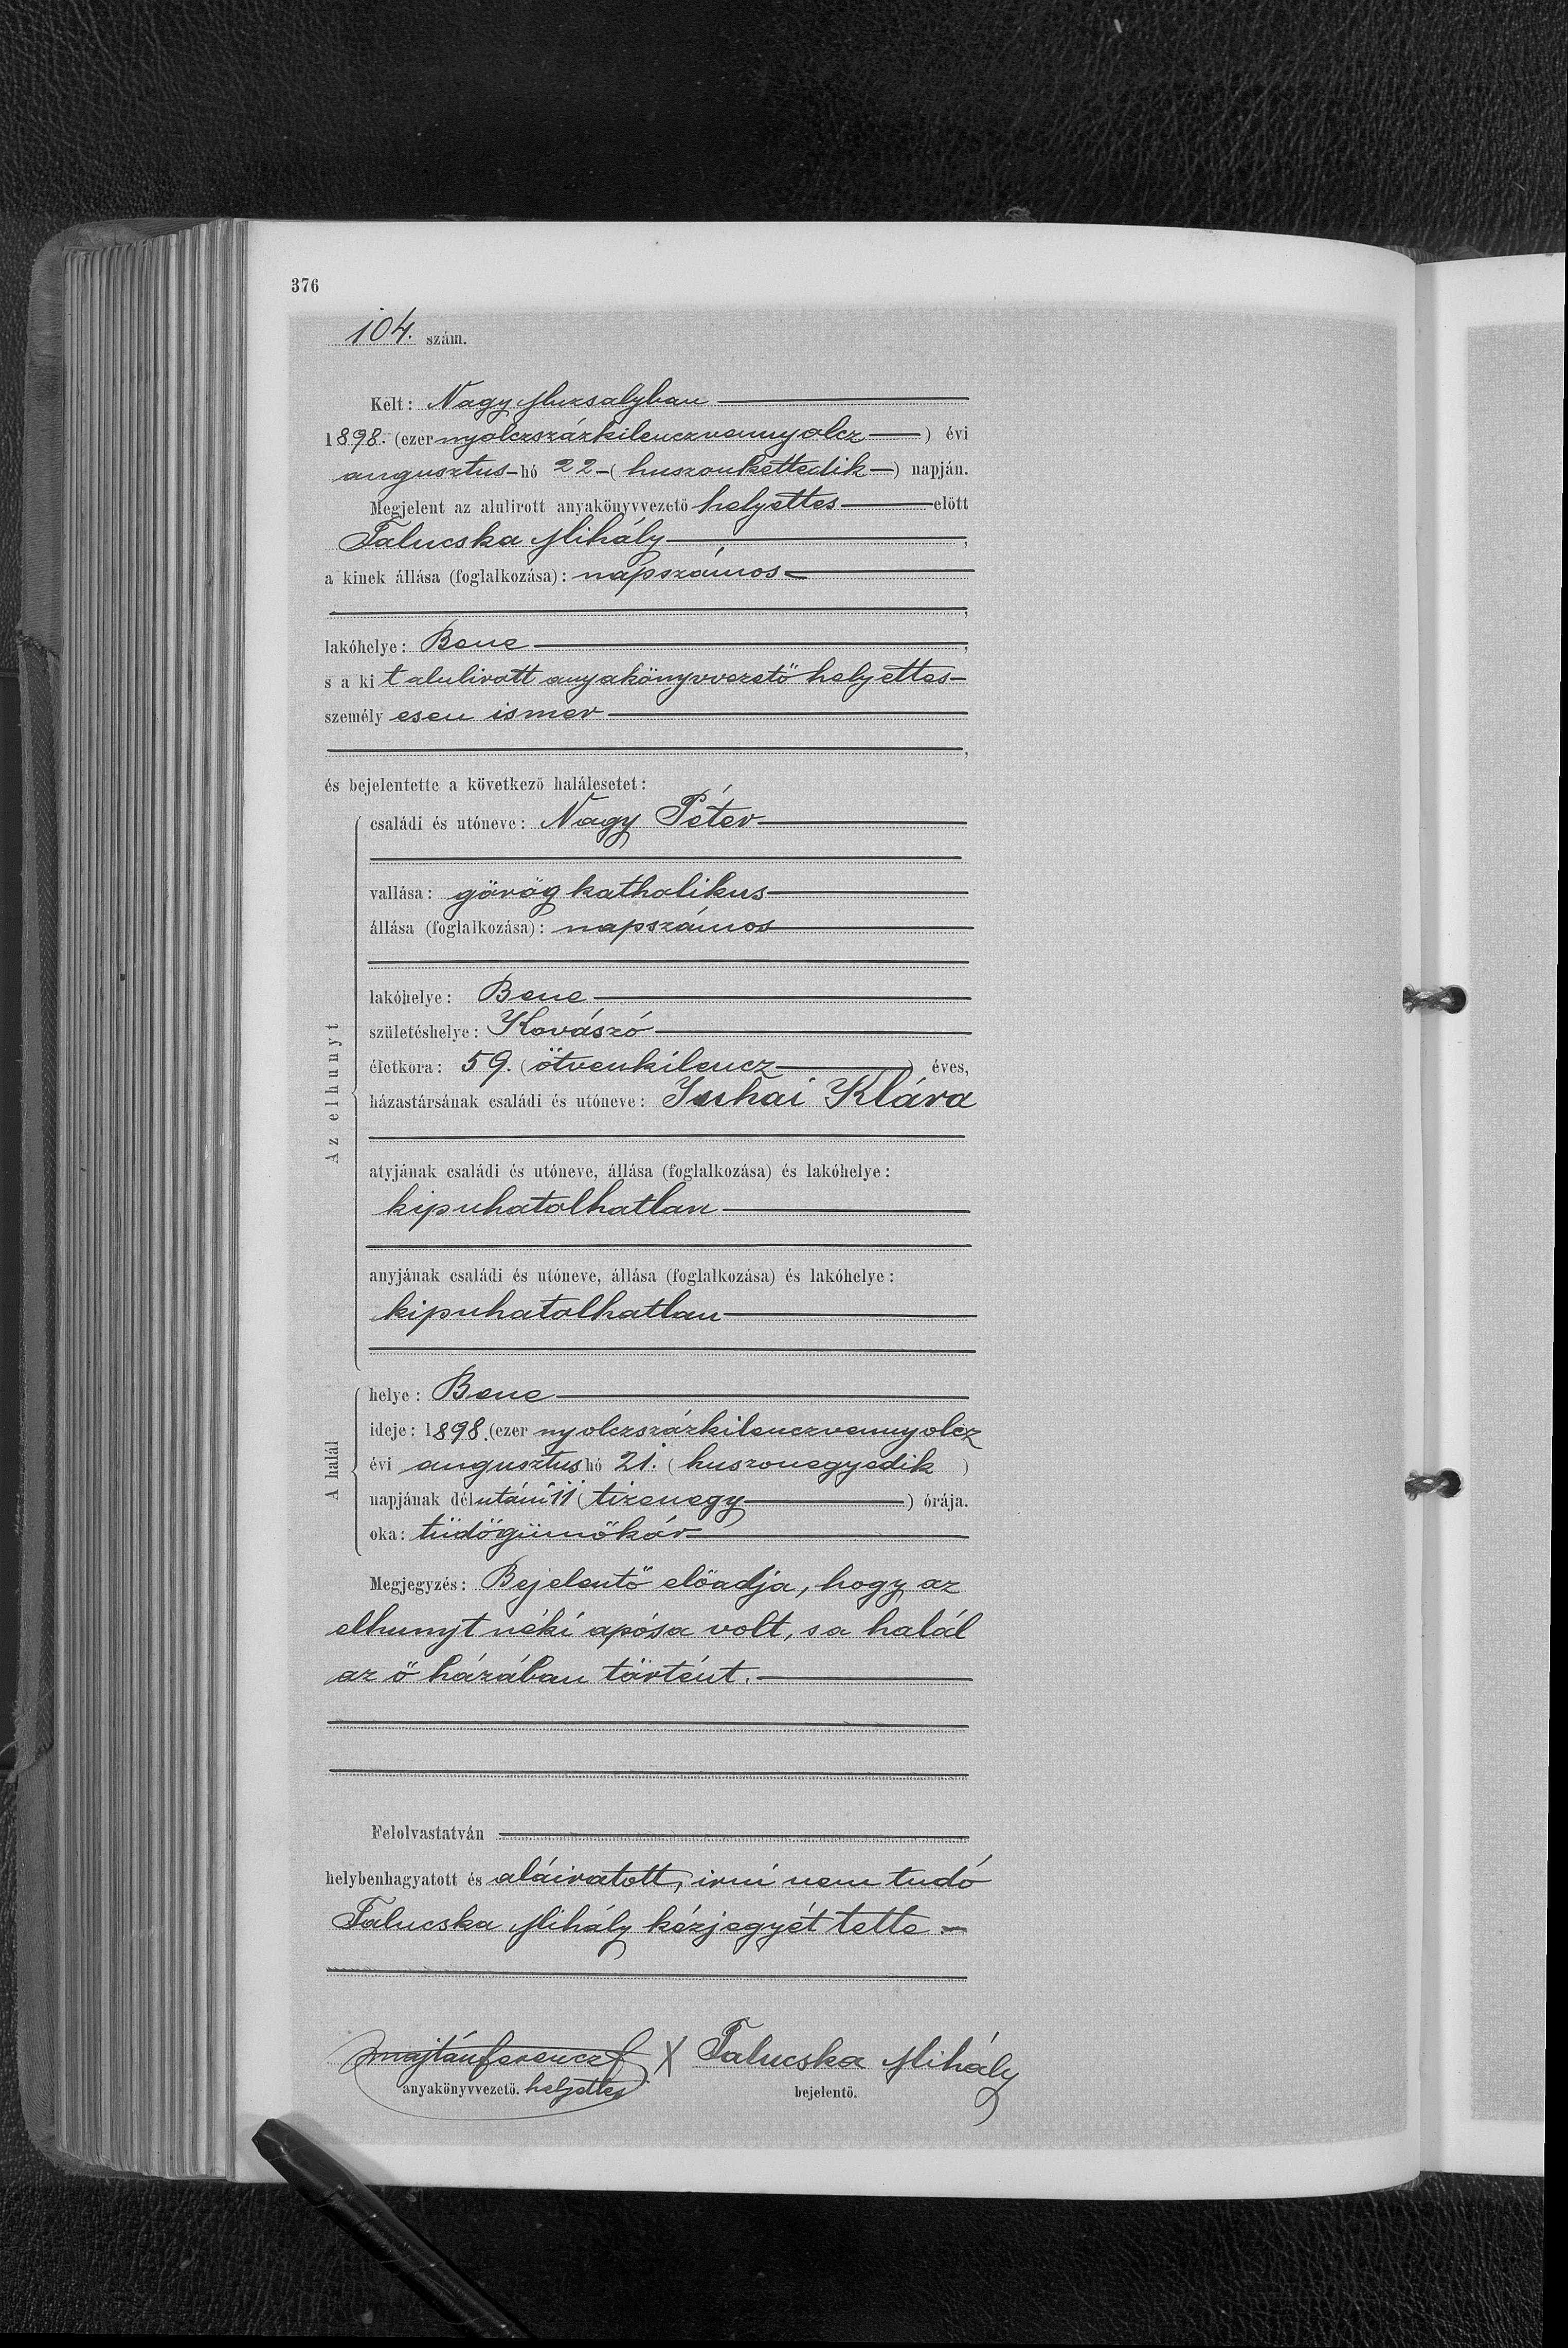 376
104. szám.
Kelt: Nagy Muzsalyban
1898. (ezer nyolczszázkilenczvennyolcz) évi
augusztus hó 22 (huszonkettedik) napján.
Megjelent az alulirott anyakönyvvezető helyettes előtt
Falucska Mihály,
a kinek állása (foglalkozása): napszámos
,
lakóhelye: Bene,
s a kit alulirott anyakönyvvezető helyettes
személyesen ismer
,
és bejelentette a következő halálesetet:
Az elhunyt
családi és utóneve: Nagy Péter
vallása: görög katholikus
állása (foglalkozása): napszámos
lakóhelye: Bene
születéshelye: Kovászó
életkora: 59. (ötvenkilencz) éves,
házastársának családi és utóneve: Juhai Klára
atyjának családi és utóneve, állása (foglalkozása) és lakóhelye:
kipuhatolhatlan
anyjának családi és utóneve, állása (foglalkozása) és lakóhelye:
kipuhatolhatlan
A halál
helye: Bene
ideje: 1898. (ezer nyolczszázkilenczvennyolcz
évi augusztus hó 21. (huszonegyedik)
napjának délutáni 11 (tizenegy) órája.
oka: tüdőgümőkór
Megjegyzés: Bejelentő előadja, hogy az
elhunyt néki apósa volt, s a halál
az ő házában történt.
Felolvastatván
helybenhagyatott és aláiratott, irni nem tudó
Falucska Mihály kézjegyét tette
Majtán Ferencz X Falucska Mihály
anyakönyvvezető. helyettes bejelentő.